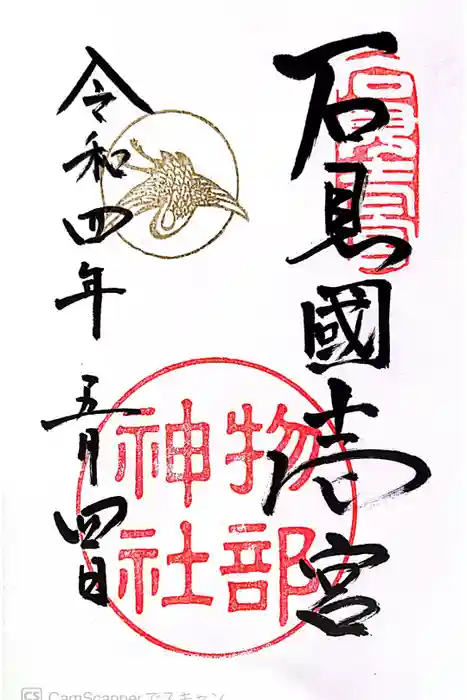 石見國壱宮
物部
神社
令和四年
五月四日
CS CamScannerでスキャン